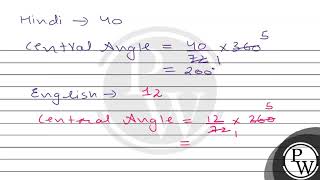 Hindi → 40
Central Angle = 40/72 × 360 5
1
= 200°
English → 12
Central Angle = 12/72 × 360 5
1
=
PW